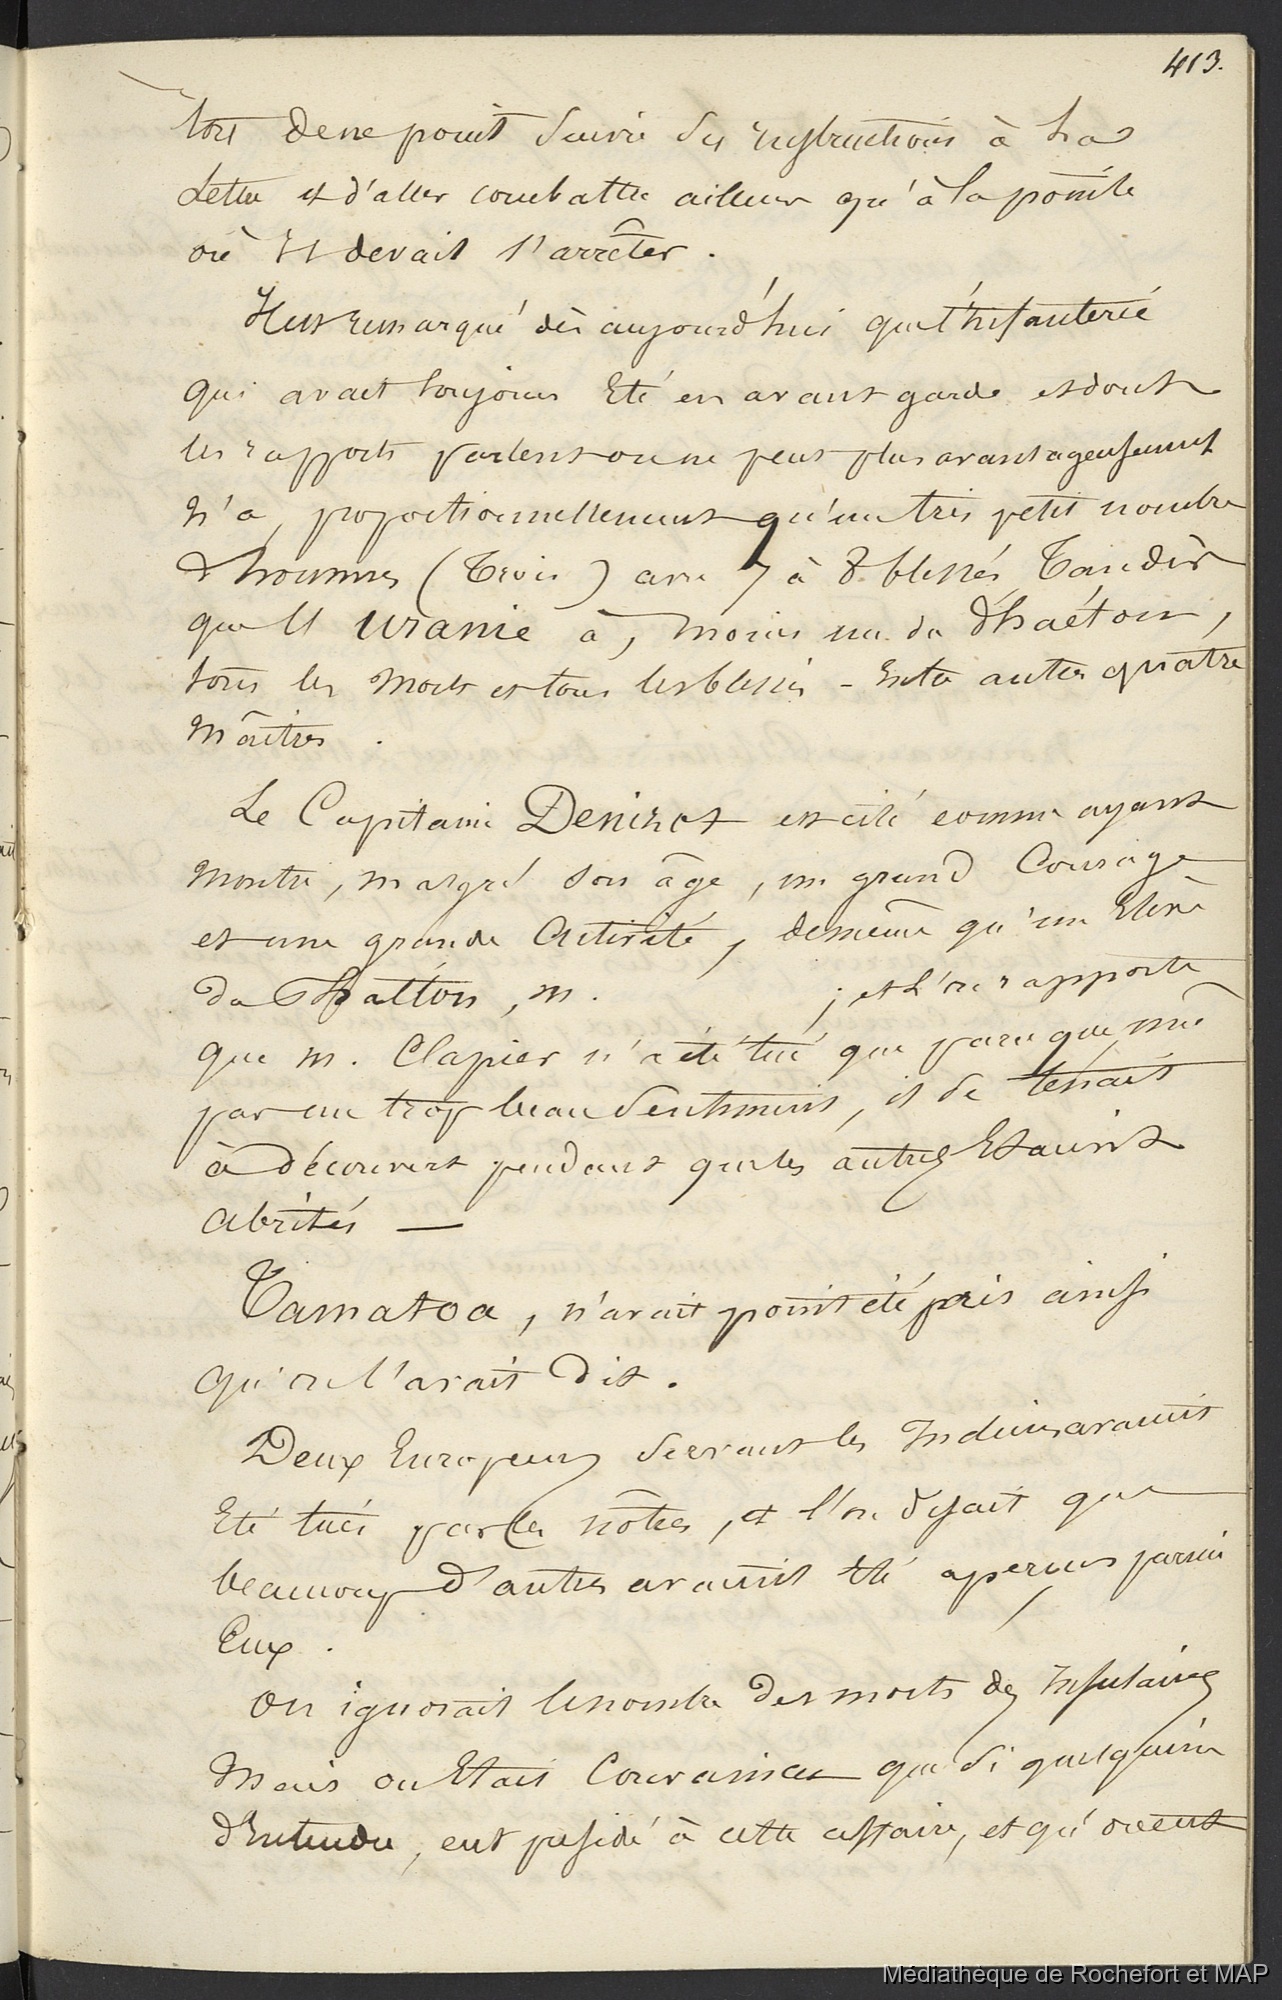 413.
tort de ne point suivre ses Instructions à La
Lettre et d'aller combattre ailleurs qu'à la pointe
où Il devait s'arrêter.
Il est remarqué dès aujourd'hui que l'Infanterie
qui avait toujours Eté en avant garde et dont
les rapports parlent on ne peut plus avantageusement
N'a, proportionnellement qu'un très petit nombre
d'hommes (Trois) avec 7 à 8 blessés Tandis
que l'Uranie a, moins un du Phaéton,
tous les Morts et tous les blessés - Entre autres quatre
Maîtres.
Le Capitaine Denizot est cité comme ayant
Montré, malgré son âge, un grand Courage
et une grande Activité, de même qu'un Elève
du Phaëton, M. ; et L'on rapporte
que M. Clapier n'a été tué que parce que, mu
par un trop beau Sentiment, il se tenait
à découvert pendant que les autres Etaient
abrités —
Tamatoa, n'avait point été pris ainsi
qu'on l'avait dit.
Deux Européens servant les Indiens avaient
Eté tués par les nôtres, et l'on disait que
beaucoup d'autres avaient Eté aperçus parmi
Eux.
On ignorait le nombre des morts des Insulaires
Mais on Etait Convaincu que si quelqu'un
d'Entendu, eut présidé à cette affaire, et qu'on eut
Médiathèque de Rochefort et MAP